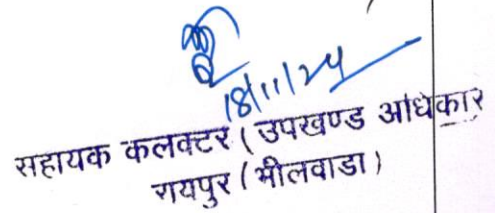 18/11/24
सहायक कलक्टर (उपखण्ड अधिकार
रायपुर (भीलवाडा)